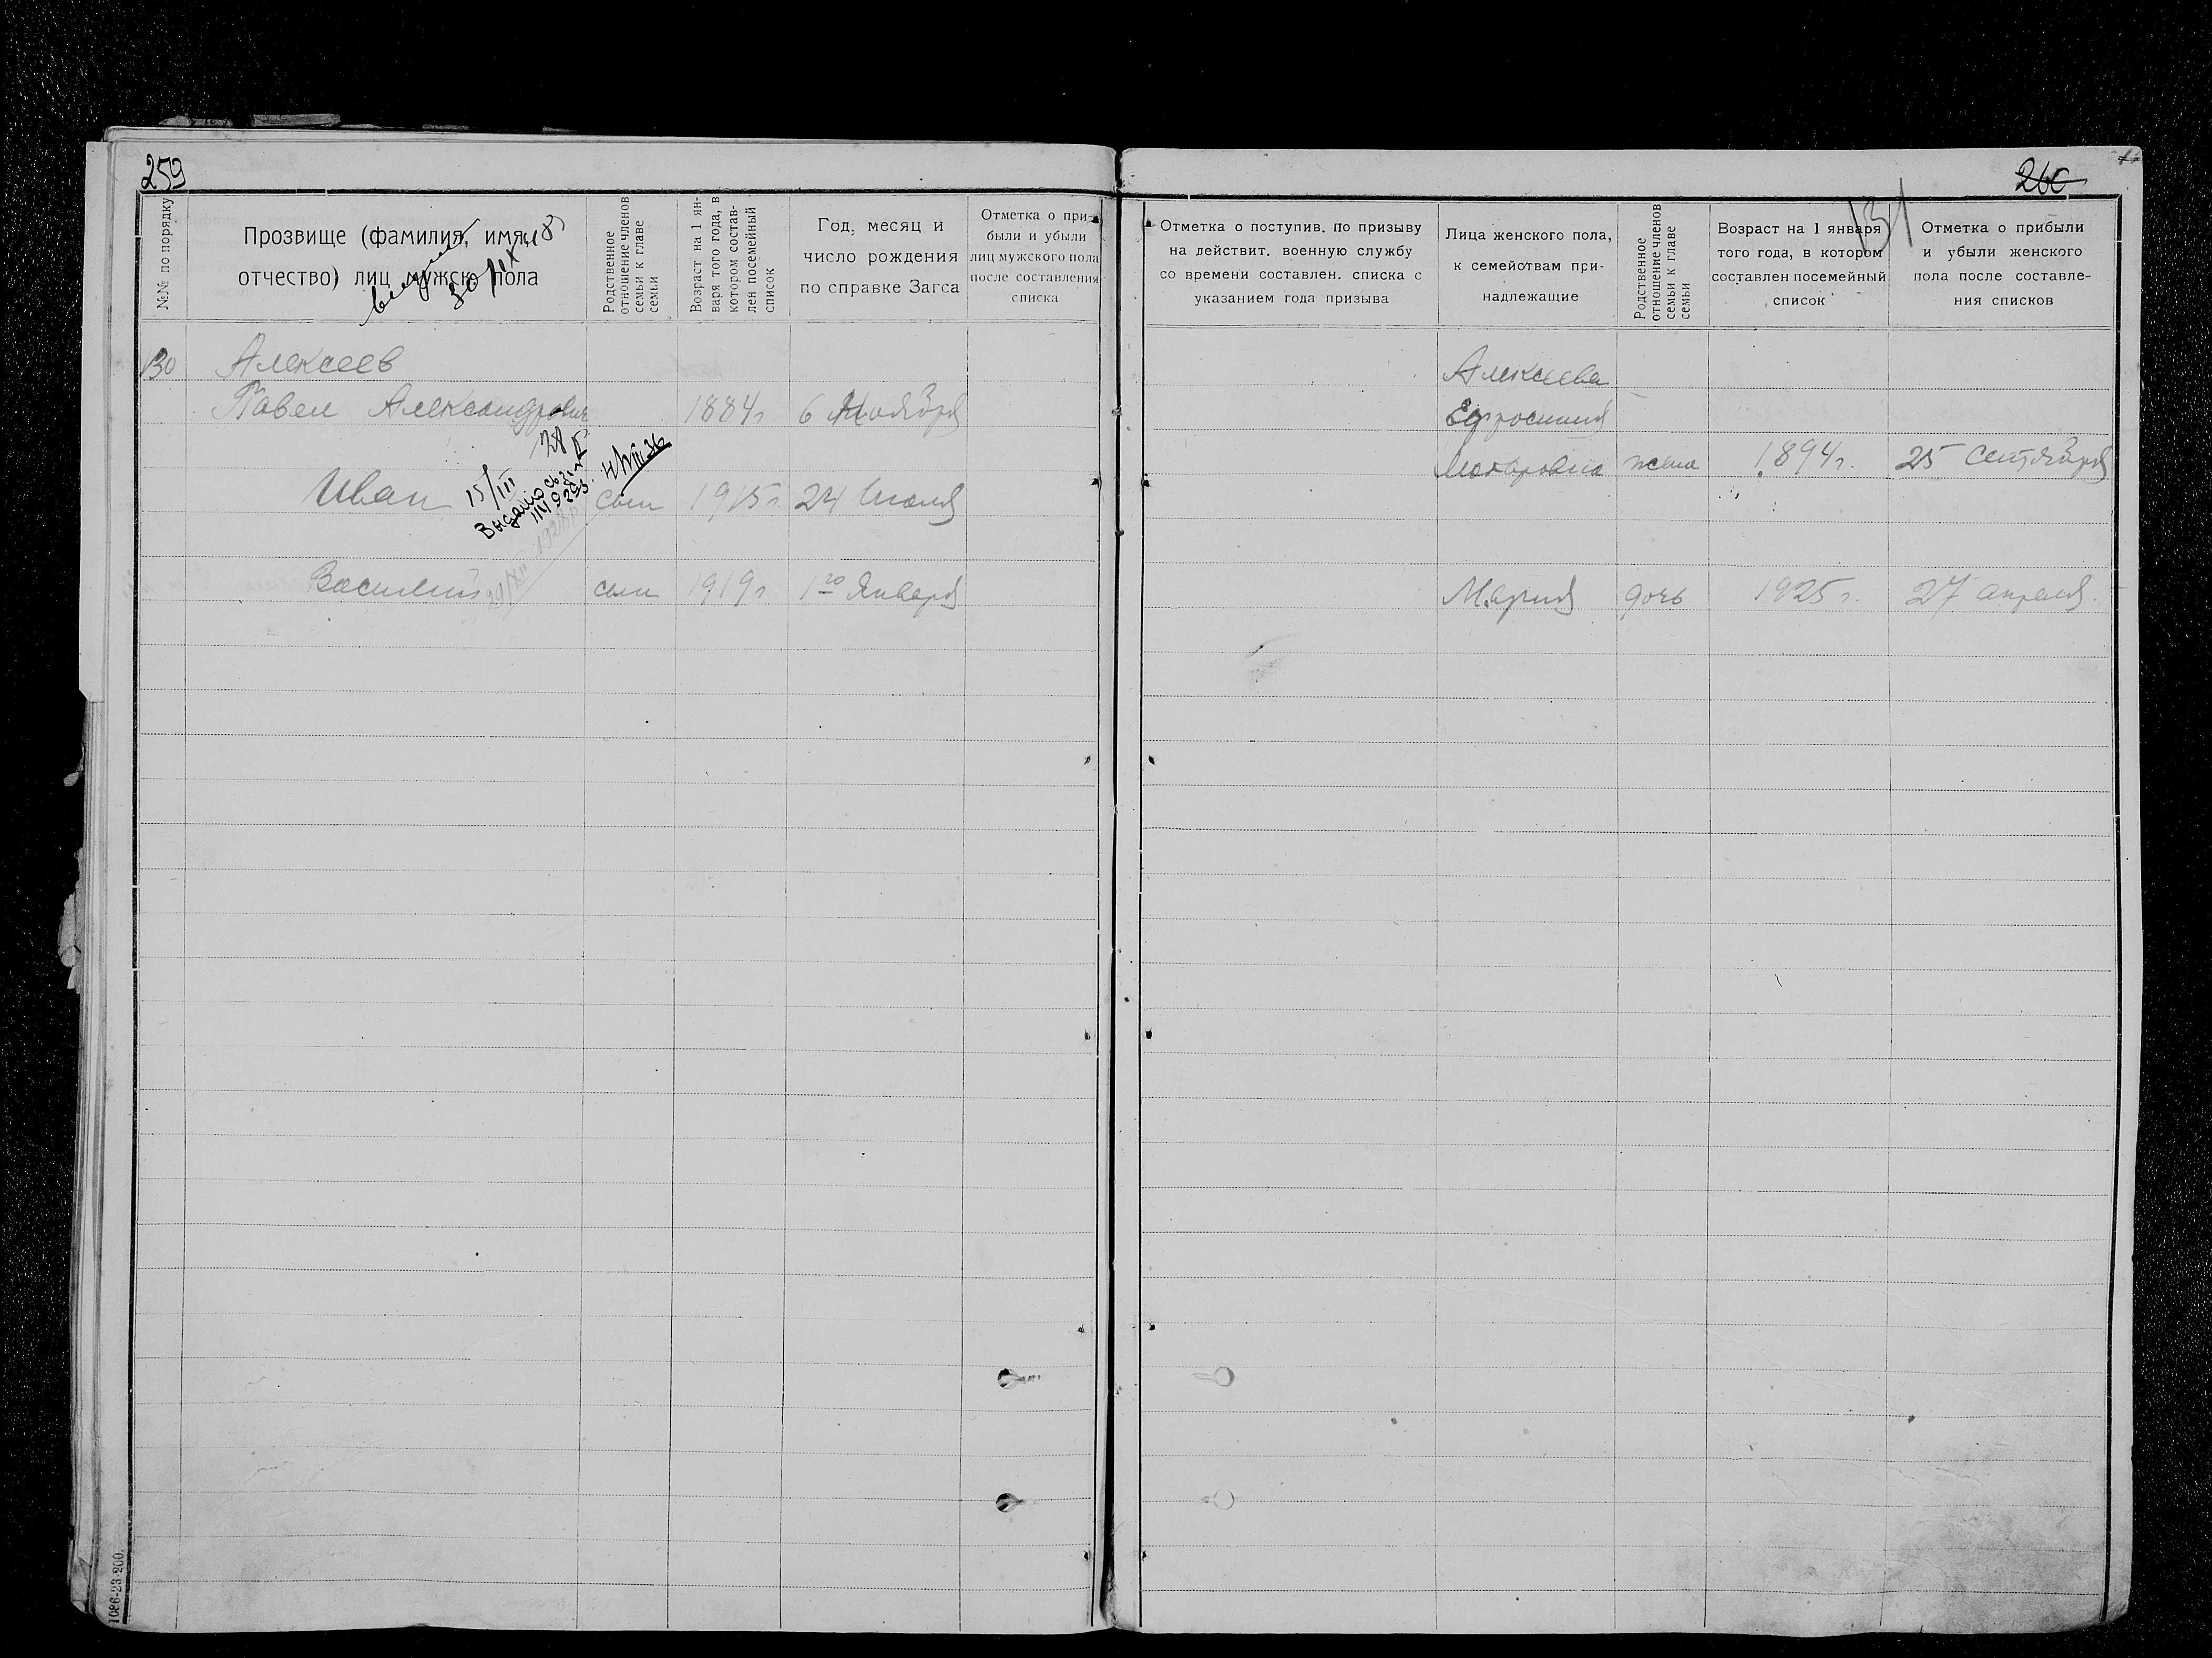 259
№№ по порядку
Прозвище (фамилия, имя,
отчество) лиц мужско пола
30/IX
Родственное
отношение членов
семьи к главе
семьи
Возраст на 1 ян-
варя того года, в
котором состав-
лен посемейный
список
Год, месяц и
число рождения
по справке Загса
Отметка о при-
были и убыли
лиц мужского пола
после составления
списка
130 Алексеев
Павел Александрович 1884г 6 Ноября
28
15/III
Выдано
Иван сын 1915г 24 Июля
Василий сын 1919г 1го Января
1086-23-200.
260
131
Отметка о поступив. по призыву
на действит. военную службу
со времени составлен. списка с
указанием года призыва
Лица женского пола,
к семействам при-
надлежащие
Родственное
отношение членов
семьи к главе
семьи
Возраст на 1 января
того года, в котором
составлен посемейный
список
Отметка о прибыли
и убыли женского
пола после составле-
ния списков
Алексеева
Ефросиния
жена 1894г. 25 Сентября
Мария дочь 1925г. 27 апреля.